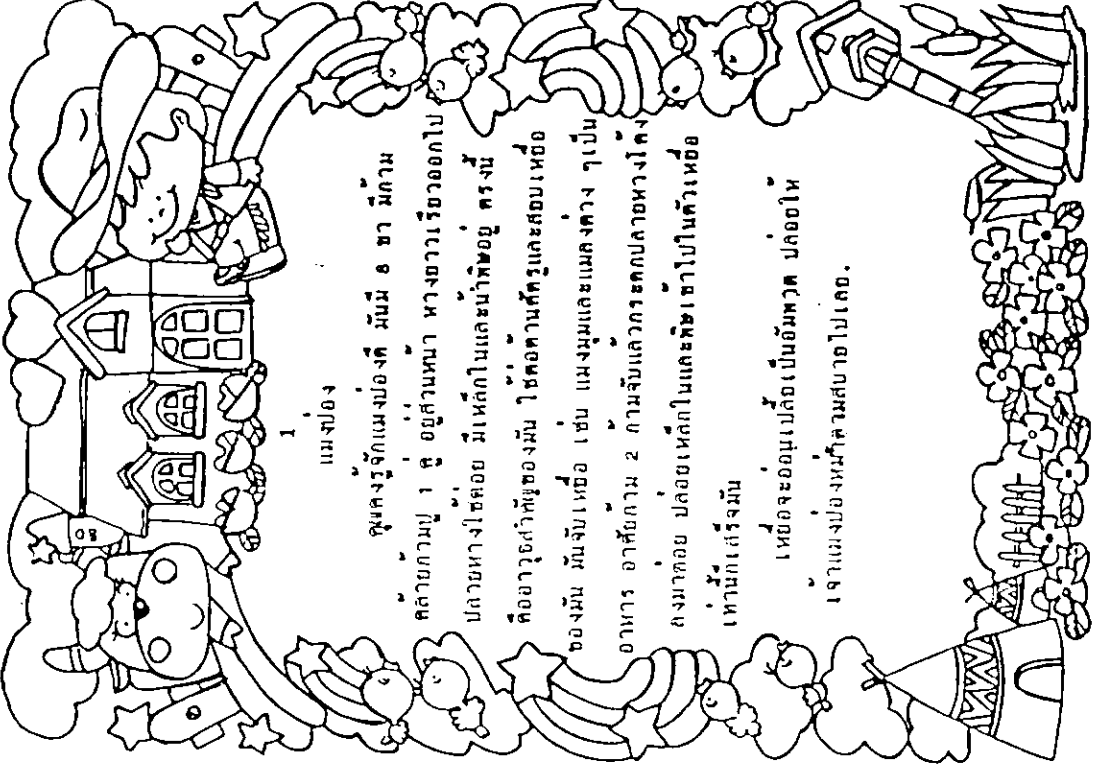 1
แมงป่อง
คุณคงรู้จักแมงป่องดี มันมี 8 ขา มีก้าม
คล้ายก้ามปู 1 คู่ อยู่ส่วนหน้า หางยาวเรียวออกไป
ปลายหางใช้ต่อย มีเหล็กในและน้ำพิษอยู่ ตรงนี้
คืออาวุธสำคัญของมัน ใช้ต่อต้านศัตรูและสยบเหยื่อ
ของมัน มันจับเหยื่อ เช่น แมงมุมและแมลงต่าง ๆเป็น
อาหาร อาศัยก้าม 2 ก้ามจับแล้วกระดกปลายหางโค้ง
ลงมาต่อย ปล่อยเหล็กในและพิษเข้าไปในตัวเหยื่อ
เท่านี้ก็เสร็จมัน
เหยื่อจะอ่อนเปลี้ยเป็นอัมพาต ปล่อยให้
เจ้าแมงป่องหม่ำตามสบายไปเลย.
80